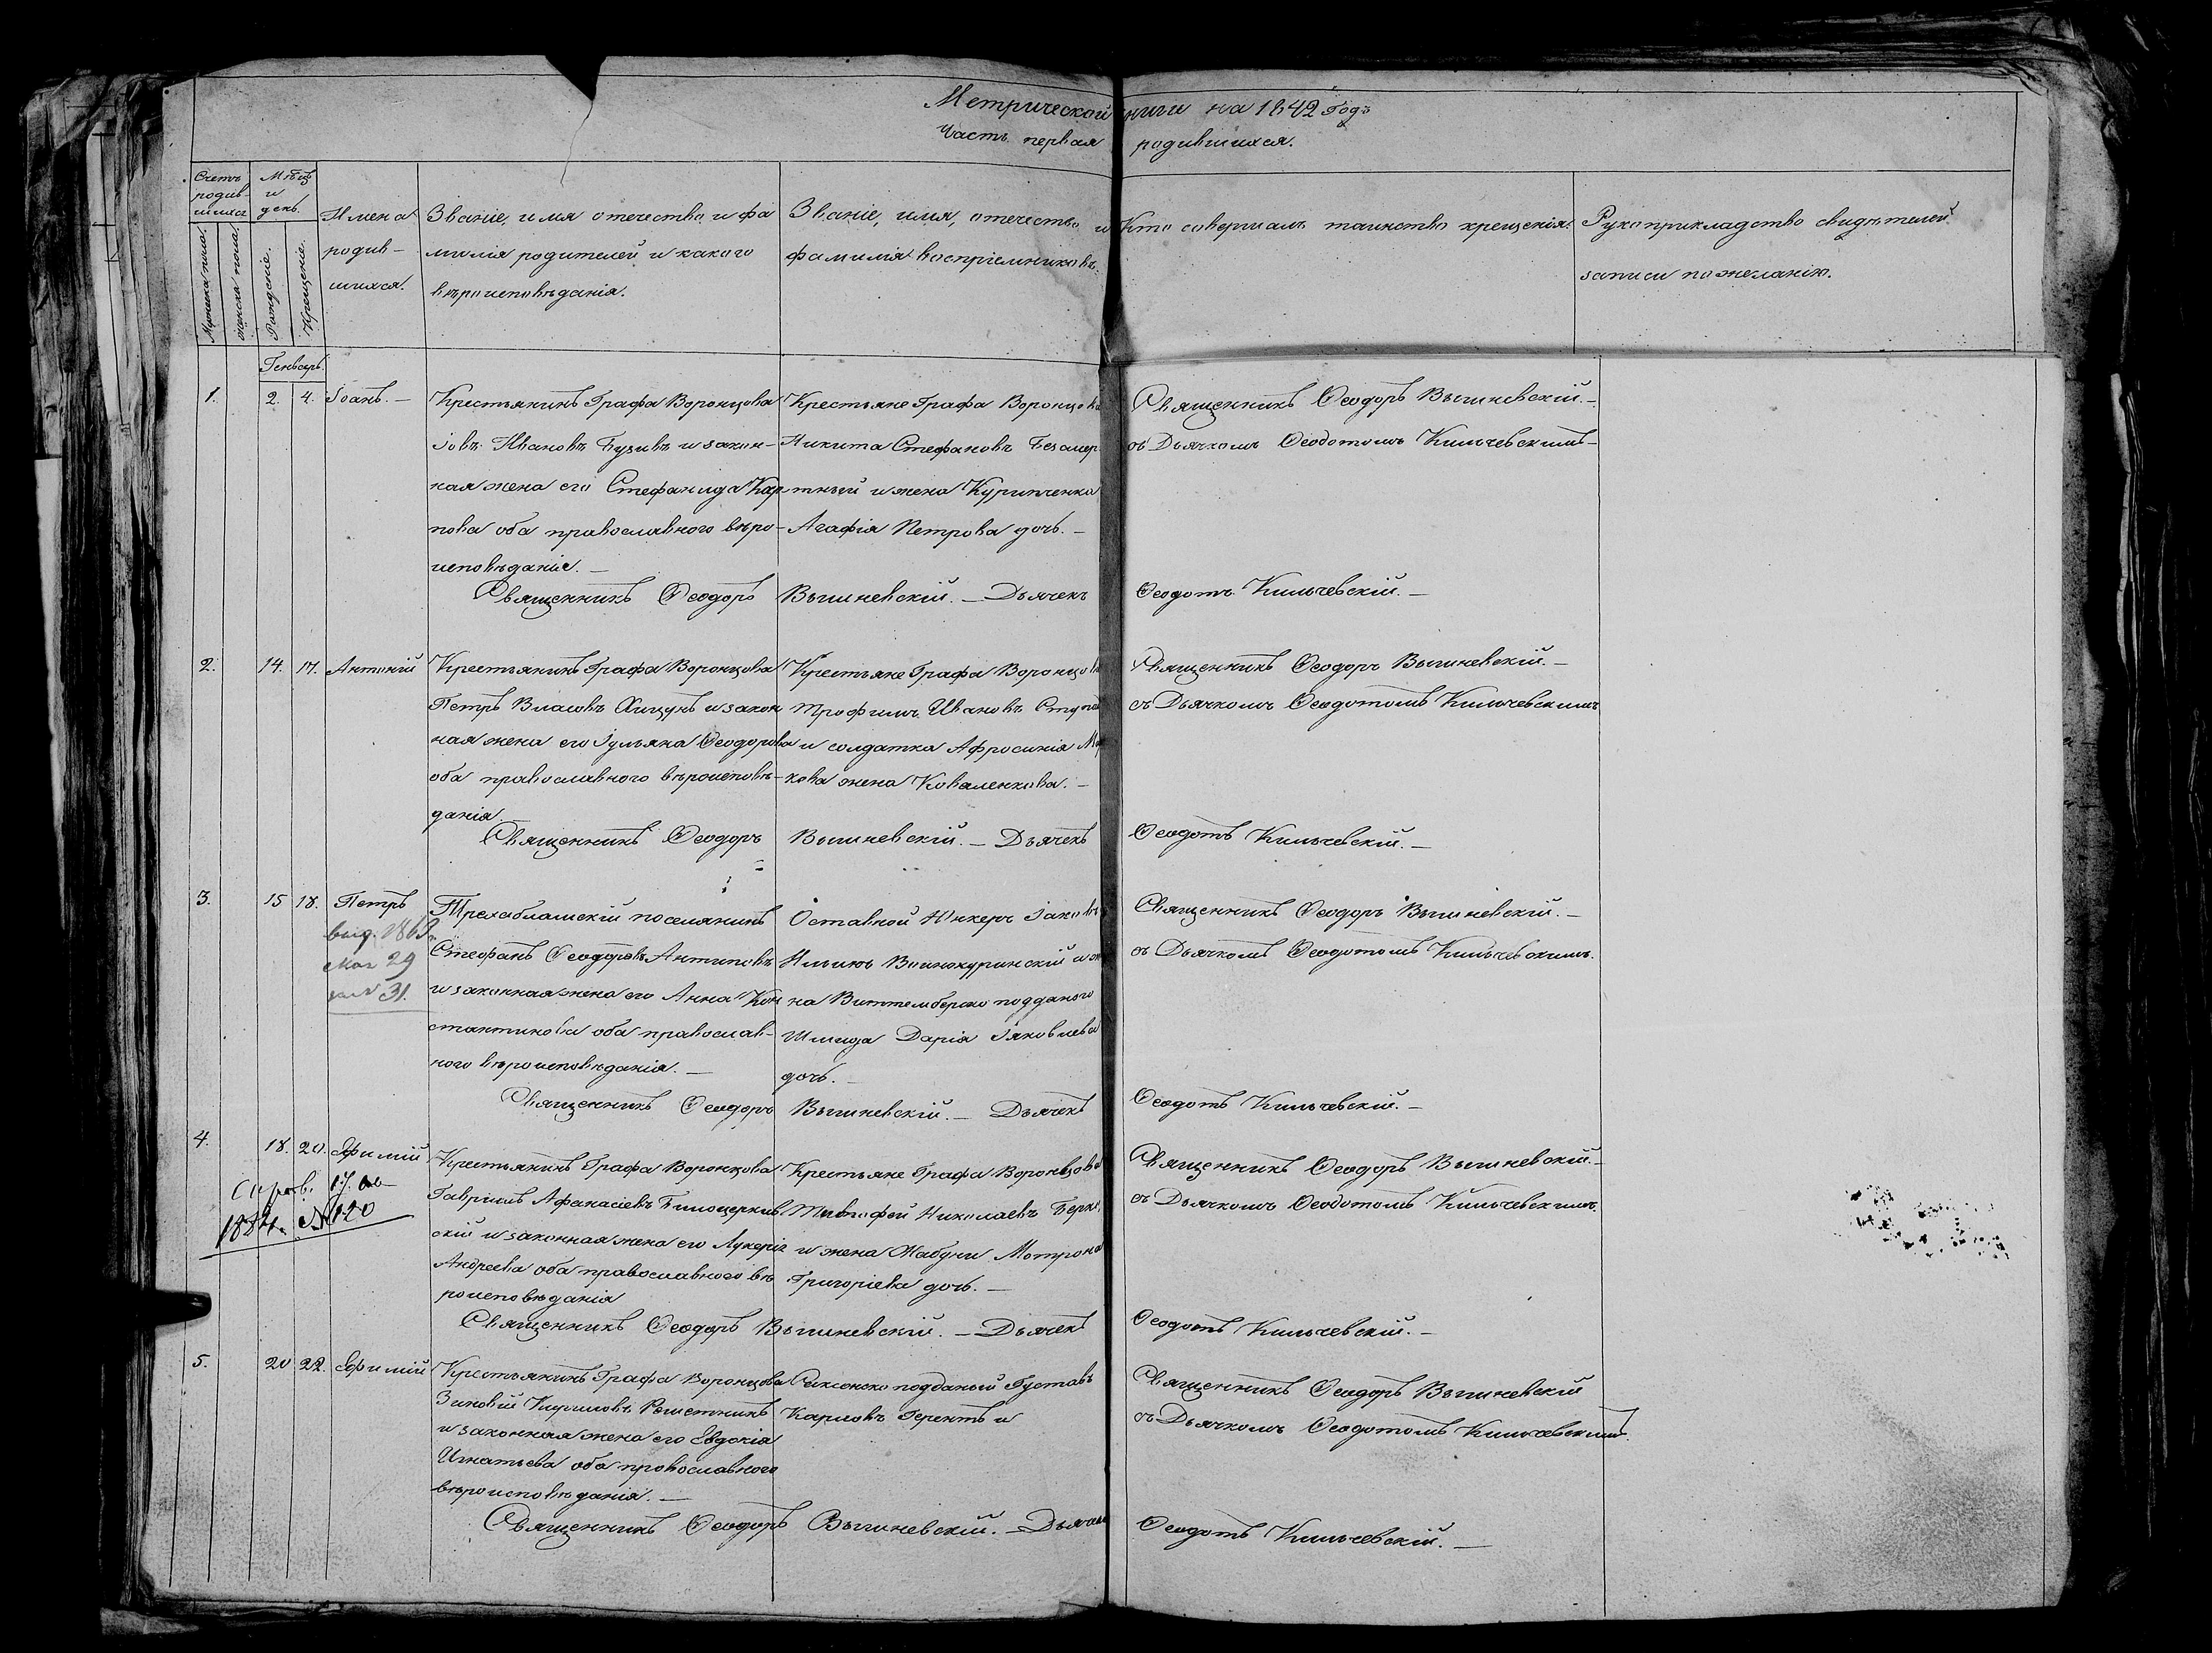 Метрической книги на 1842 Годъ
Часть первая родившихся.
Счетъ родив-шихся
Мѣсц и день.
Мужска пола.
Женска пола.
Рожденіе.
Крещеніе.
Имена родив-шихся.
Званіе, имя отечество и фа
милія родителей и какого
вѣроисповѣданія.
Званіе, имя, отечество и
фамилія воспріемниковъ.
Кто совершалъ таинство крещенія.
Рукоприкладство свидѣтелей
записи по желанію.
Генварь.
1. 2. 4. Іоанъ. —
Крестьянинъ Графа Воронцова
Іовъ Ивановъ Бузивъ и закон-
ная жена его Стефанида Кар
пова оба православного вѣро-
исповѣданіе. —
Крестьяне Графа Воронцова
Никита Стефановъ
и жена
Агафія Петрова дочь. —
Священникъ Ѳеодоръ Вышневскій. —
съ Дьячкомъ Ѳеодотомъ Кильчевскимъ —
Священникъ Ѳеодоръ Вышневскій. — Дьячекъ Ѳеодотъ Кильчевскій. —
2. 14. 17. Антоній
Крестьянинъ Графа Воронцова
Петръ Власовъ Хицунъ и закон
ная жена его Іульяна Ѳеодорова
оба православного вѣроисповѣ-
данія. —
Крестьяне Графа Воронцова
Трофимъ Ивановъ
и солдатка Афросинія Мар
кова жена Коваленкова. —
Священникъ Ѳеодоръ Вышневскій. —
съ Дьячкомъ Ѳеодотомъ Кильчевскимъ
Священникъ Ѳеодоръ Вышневскій. — Дьячекъ Ѳеодотъ Кильчевскій. —
3. 15 18. Петръ
выд. 1865
Мая 29
за № 31.
поселянинъ
Стефанъ Ѳеодоровъ Антиповъ
и законная жена его Анна Кон
стантинова оба православ-
ного вѣроисповѣданія. —
Оставной Юнкеръ Іаковъ
Ильинъ Винокуринскій и же
на Виттемберско подданого
Шмида Дарія Іяковлева
дочь. —
Священникъ Ѳеодоръ Вышневскій. —
съ Дьячкомъ Ѳеодотомъ Кильчевскимъ.
Священникъ Ѳеодоръ Вышневскій. — Дьячекъ Ѳеодотъ Кильчевскій. —
4. 18. 20. Ефимій
1884. № 120
Крестьянинъ Графа Воронцова
Гавриилъ Афанасіевъ Билоцерков
скій и законная жена его Лукерія
Андреева оба православного вѣ
роисповѣданія
Крестьяне Графа Воронцова
Тимофей Николаевъ
и жена Жабуни Мотрона
Григоріева дочь. —
Священникъ Ѳеодоръ Вышневскій. —
съ Дьячкомъ Ѳеодотомъ Кильчевскимъ.
Священникъ Ѳеодоръ Вышневскій. — Дьячекъ Ѳеодотъ Кильчевскій. —
5. 20 22. Ефимій
Крестьянинъ Графа Воронцова
Зиновій Кириловъ Решетникъ
и законная жена его Евдокія
Игнатьева оба православного
вѣроисповѣданія. —
Саксонско подданый Густавъ
Карловъ Герентъ и
Священникъ Ѳеодоръ Вышневскій
съ Дьячкомъ Ѳеодотомъ Кильчевскимъ.
Священникъ Ѳеодоръ Вышневскій. — Дьячекъ Ѳеодотъ Кильчевскій. —